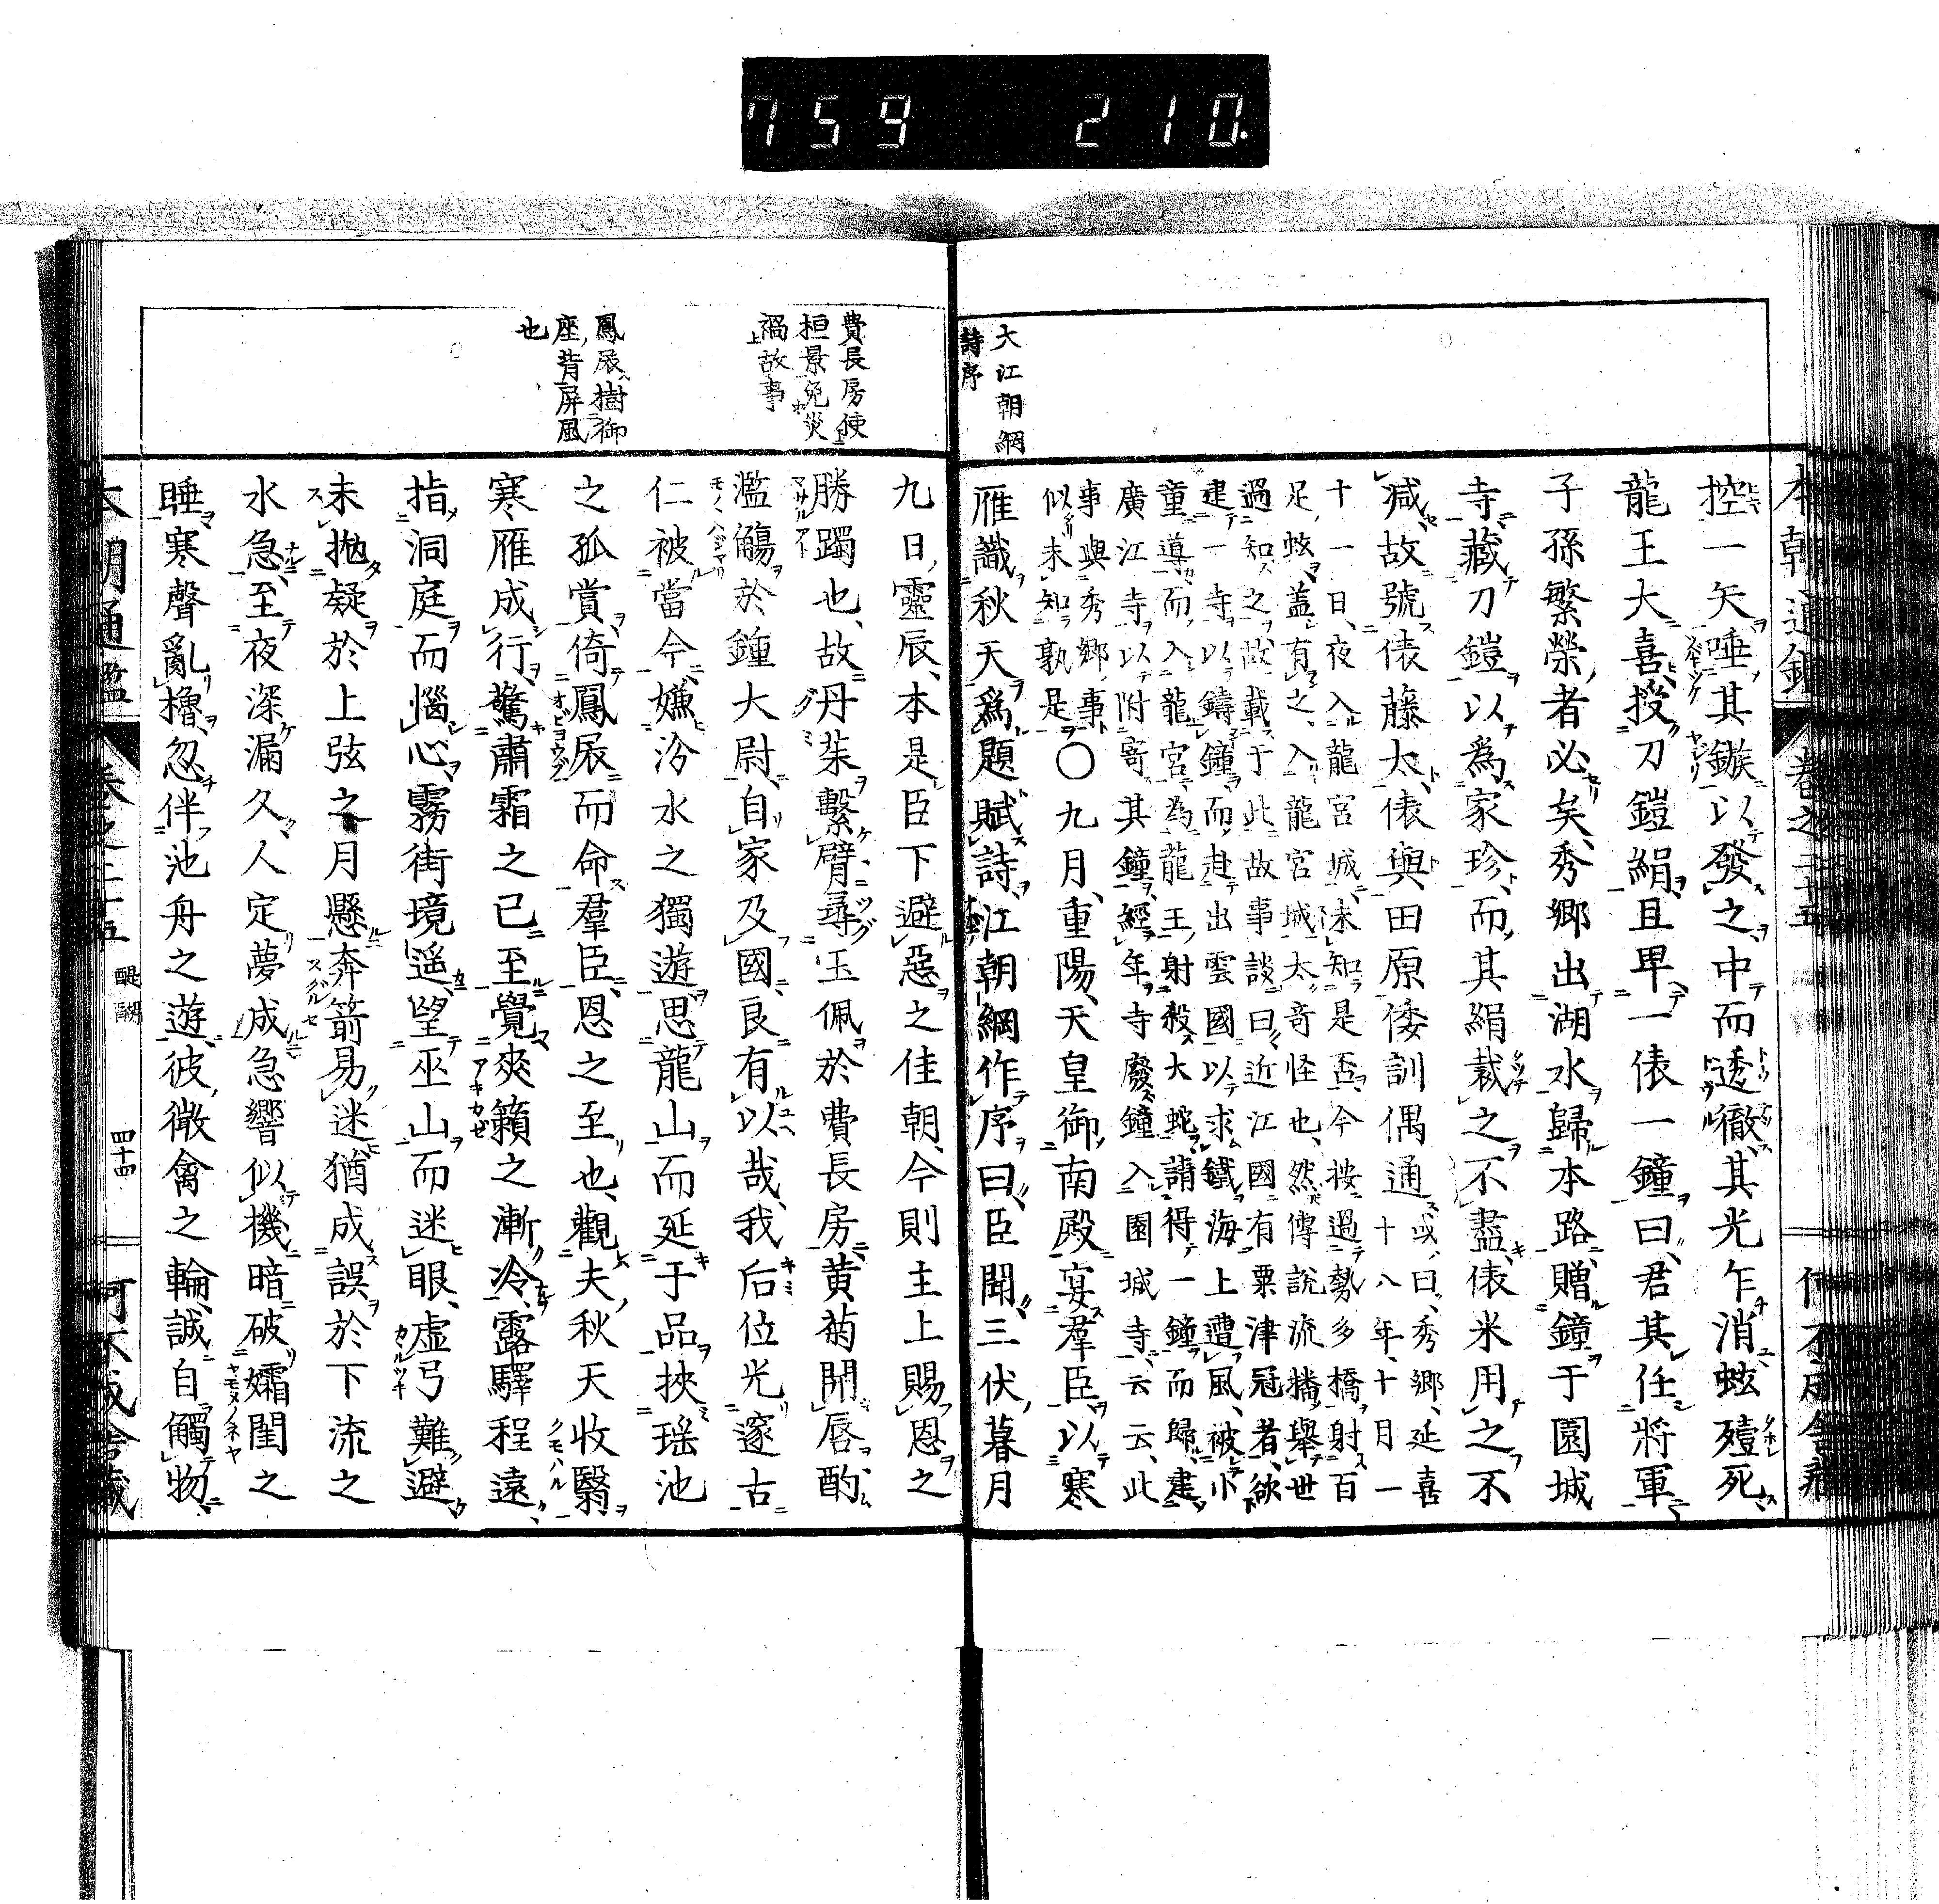 759 210.
本朝通鑑 卷之二十五
控一矢唾其鏃以發之中而透徹其光乍消蚿殪死
龍王大喜投刀鎧絹且卑一俵一鐘曰君其任將軍
子孫繁榮者必矣秀郷出湖水歸本路贈鐘于園城
寺藏刀鎧以爲家珍而其絹裁之不盡俵米用之不
減故號俵藤太俵與田原倭訓偶通或曰秀郷延喜
十八年十月一
十一日夜入龍宮城未知是否今按過勢多橋射百
足蚿蓋有之入龍宮城太奇怪也然傳説流播舉世
過知之故載于此故事談曰近江國有粟津冠者欲
建一寺以鑄鐘而赴出雲國以求鐵海上遭風被小
童導而入龍宮為龍王射殺大蛇請得一鐘而歸建
廣江寺以附寄其鐘經年寺廢鐘入園城寺云云此
事與秀郷事
似未知孰是〇九月重陽天皇御南殿宴羣臣以寒
雁識秋天爲題賦詩江朝綱作序曰臣聞三伏暮月
大江朝綱
詩序
九日靈辰本是臣下避惡之佳朝今則主上賜恩之
勝躅也故丹茱繫臂尋玉佩於費長房黄菊開唇酌
濫觴於鍾大尉自家及國良有以哉我后位光邃古
仁被當今嫌汾水之獨遊思龍山而延于品挾瑶池
之孤賞倚鳳扆而命羣臣恩之至也觀夫秋天收翳
寒雁成行驚肅霜之已至覺爽籟之漸冷露驛程遠
指洞庭而惱心霧街境遥望巫山而迷眼虚弓難避
未抛疑於上弦之月懸奔箭易迷猶成誤於下流之
水急至夜深漏久人定夢成急響似機暗破孀閨之
睡寒聲亂櫓忽伴池舟之遊彼微禽之輪誠自觸物
費長房使
桓景免災
禍故事
鳳扆樹御
座背屏風
也
本朝通鑑 卷之二十五 醍醐 四十四